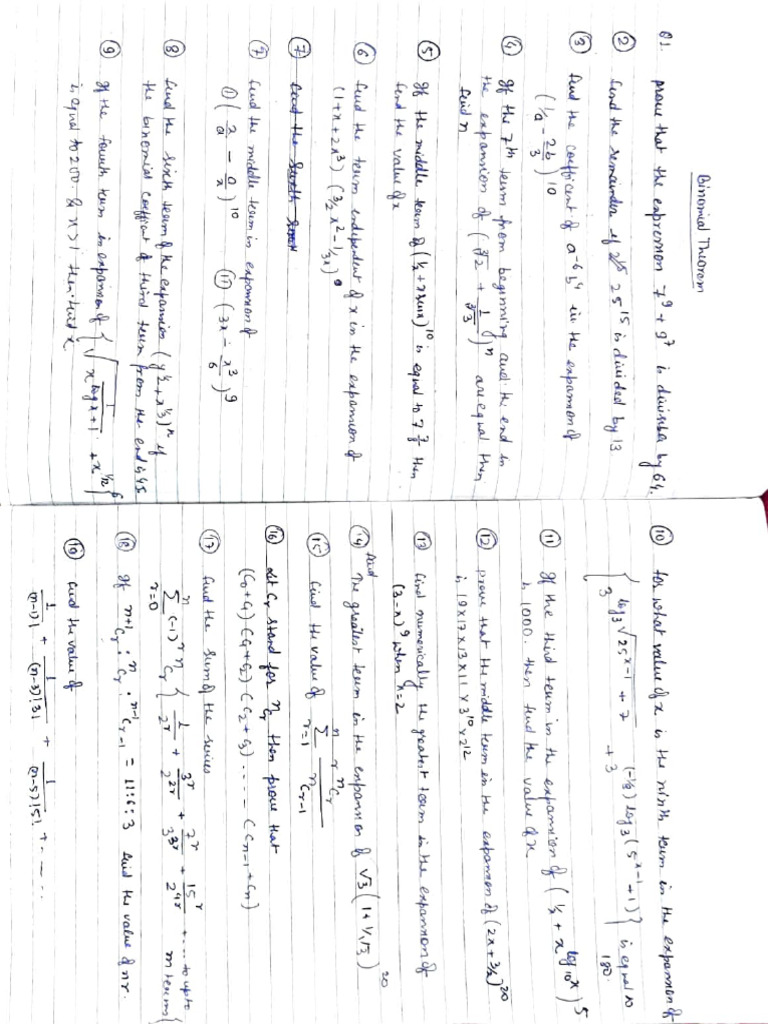 Binomial Theorem
Q1. prove that the expression 7⁹ + 9⁷ is divisible by 64.
② find the remainder if 25¹⁵ is divided by 13
③ find the coefficient of a⁻⁶b⁴ in the expansion of
(1/a - 2b/3)¹⁰
④ If the 7th term from beginning and the end in
the expansion of (∛2 + 1/∛3)ⁿ are equal then
find n
⑤ If the middle term of (1/x + x sin x)¹⁰ is equal to 7 7/8 then
find the value of x
⑥ find the term independent of x in the expansion of
(1+x+2x³) (3/2 x² - 1/3x)⁹
⑦ find the sixth
⑦ find the middle term in expansion of
① (x/a - a/x)¹⁰ ② (3x - x³/6)⁹
⑧ find the sixth term of the expansion (y^1/2 + x^1/3)ⁿ if
the binomial coefficient of third term from the end is 45
⑨ If the fourth term in expansion of { √(1/x^(log x+1)) + x^1/12 }⁶
is equal to 200. & x>1 then find x.
⑩ for what value of x is the ninth term in the expansion of
{ 3^(log₃√(25^(x-1) + 7)) + 3^((-1/8) log₃(5^(x-1)+1)) } is equal to
180.
⑪ If the third term in the expansion of (1/x + x^(log₁₀x))⁵
is 1000. then find the value of x
⑫ prove that the middle term in the expansion of (2x + 3/x)²⁰
is 19x17x13x11 x 3¹⁰ x 2¹²
⑬ find numerically the greatest term in the expansion of
(3-x)⁹ when x=2
find
⑭ The greatest term in the expansion of √3 (1 + 1/√3)²⁰
⑮ find the value of Σ r=1 n r ⁿCr / ⁿCr-1
⑯ Let Cr stand for ⁿCr then prove that
(C₀+C₁) (C₁+C₂) (C₂+C₃) ..... (Cn-1 + Cn)
⑰ find the sum of the series
Σ r=0 n (-1)ʳ ⁿCr { 1/2ʳ + 3ʳ/2²ʳ + 7ʳ/3³ʳ + 15ʳ/2⁴ʳ + ... to upto m terms }
⑱ If ⁿ⁺¹Cr : ⁿCr : ⁿ⁻¹Cr-1 = 11:6:3 find the value of nr.
⑲ find the value of
1/(n-1)! + 1/(n-3)!3! + 1/(n-5)!5! + .....